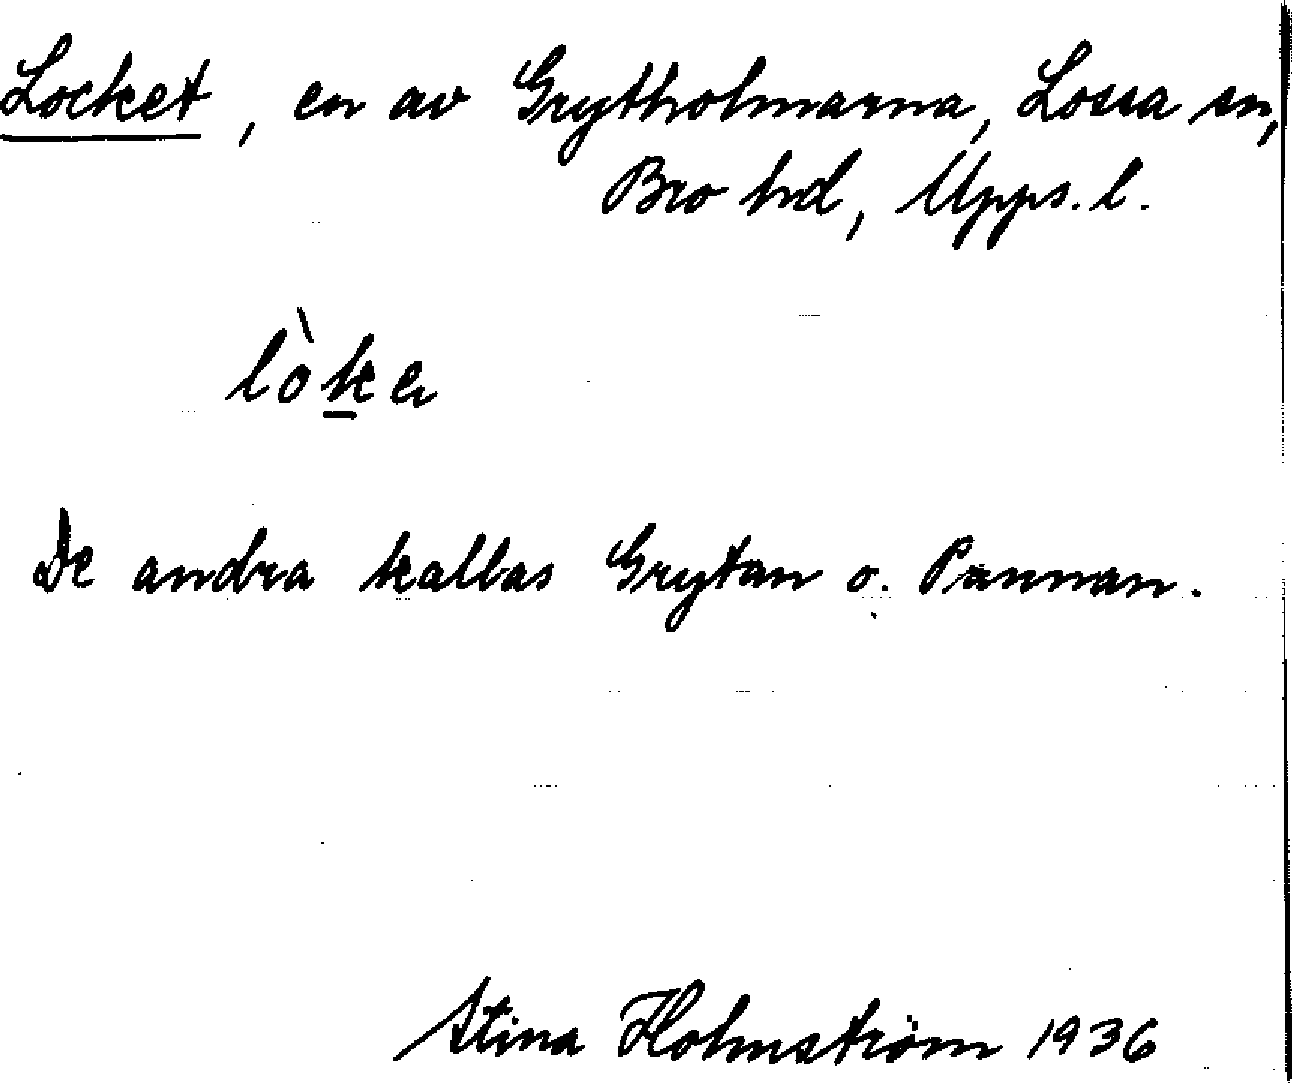 Locket, en av Grytholmarna, Lossa sn,
Bro hd, Upps. l.
lòke
De andra kallas Grytan o. Pannan.
Stina Holmström 1936